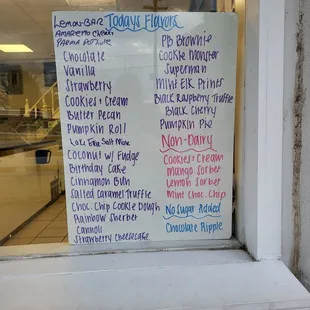 Todays Flavors
LEMON-BAR
AMARETTO CHERRY
PB Brownie
Cookie Monster
Superman
Mint Elk Prints
Black Raspberry Truffle
Black Cherry
Pumpkin Pie
Non-Dairy
Cookies & Cream
Mango Sorbet
Lemon Sorbet
Mint Choc. Chip
No Sugar Added
Chocolate Ripple
Chocolate
Vanilla
Strawberry
Cookies & Cream
Butter Pecan
Pumpkin Roll
Coconut w/ Fudge
Birthday Cake
Cinnamon Bun
Salted Caramel Truffle
Choc. Chip Cookie Dough
Rainbow Sherbet
Cannoli
Strawberry Cheesecake